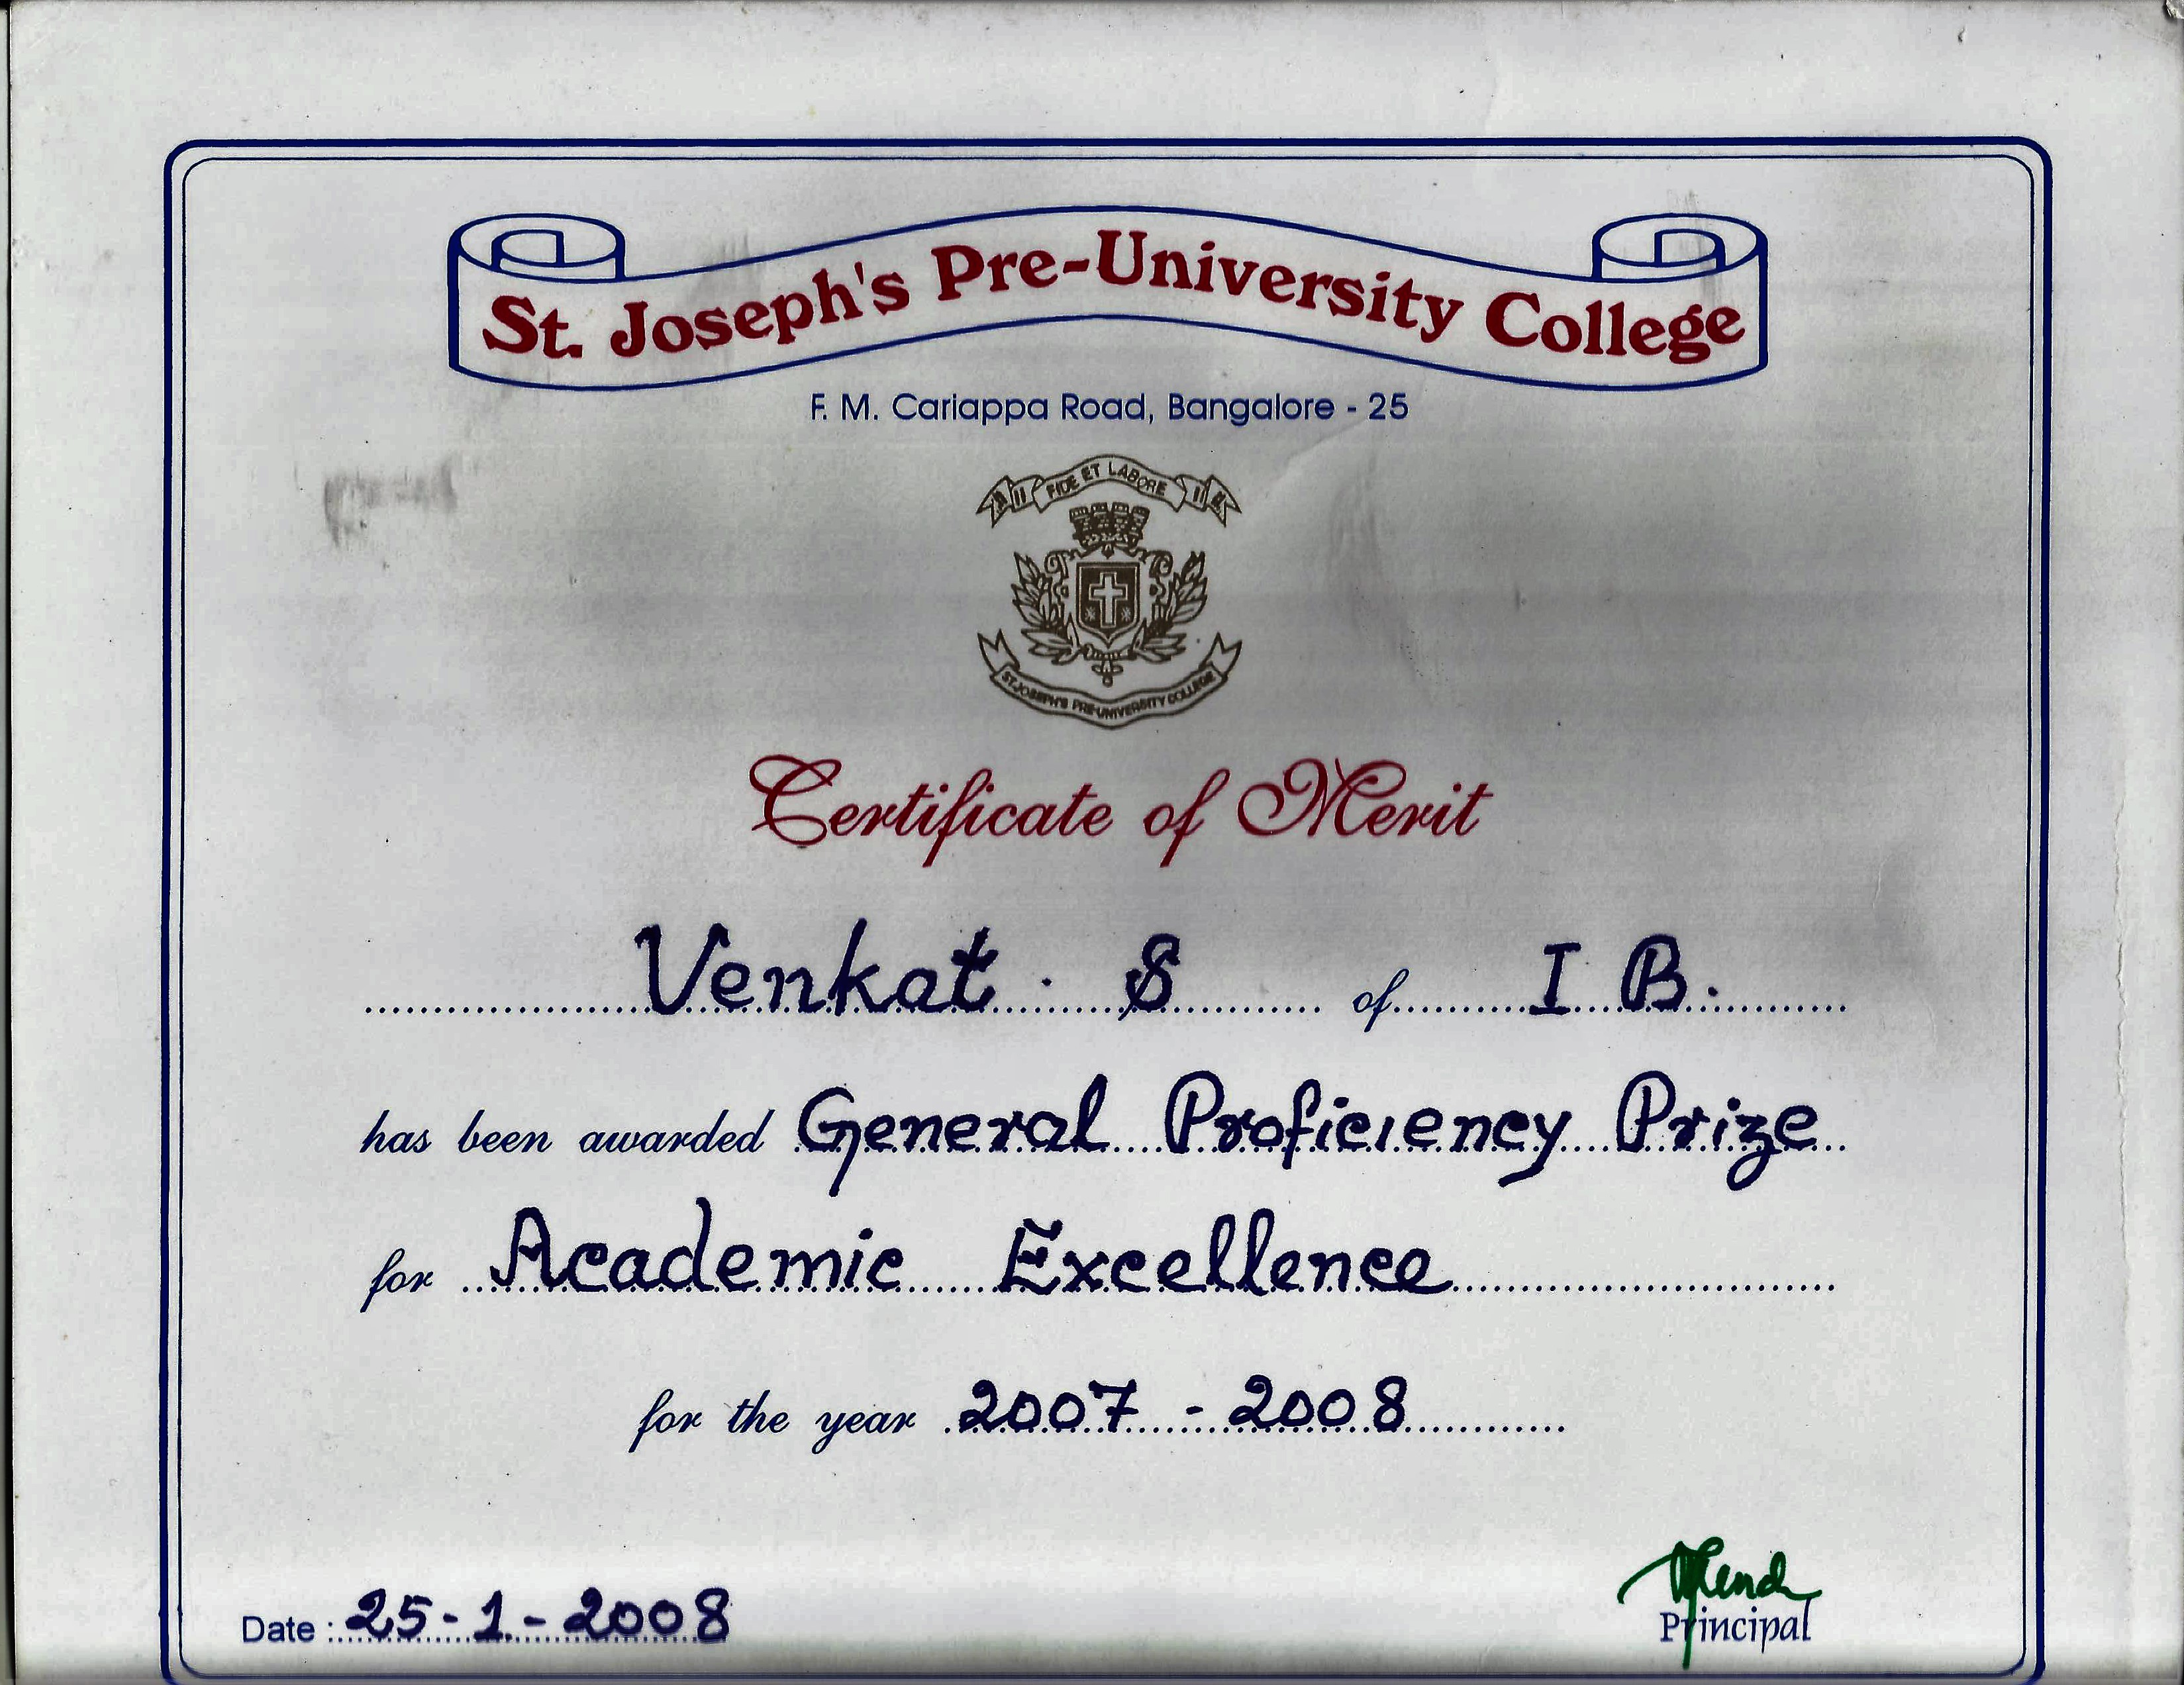 St. Joseph's Pre-University College
F. M. Cariappa Road, Bangalore - 25
FIDE ET LABORE
ST. JOSEPH'S PRE-UNIVERSITY COLLEGE
Certificate of Merit
Venkat . S of I B.
has been awarded General Proficiency Prize
for Academic Excellence
for the year 2007 - 2008
Date : 25-1-2008
Principal